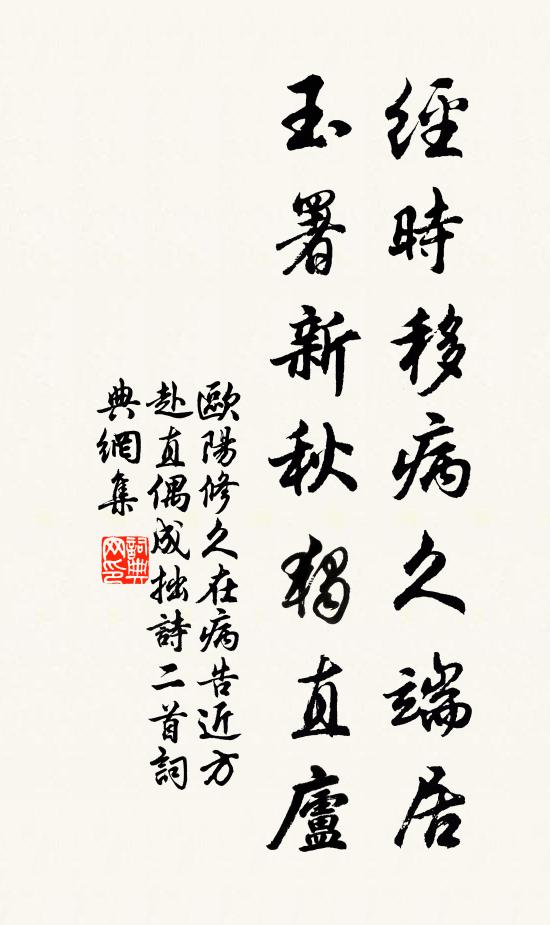 經時移病久端居
玉署新秋獨直廬
歐陽修久在病告近方
赴直偶成拙詩二首詞
典網集
詞典网印